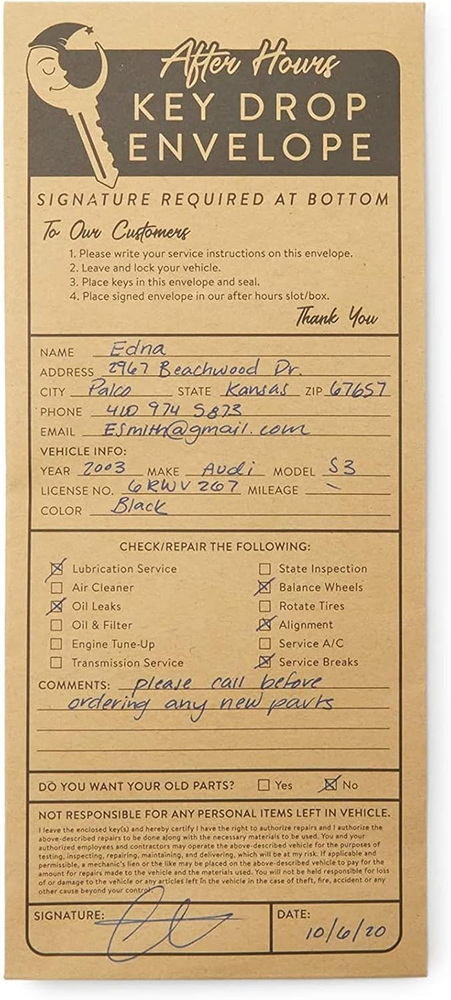 After Hours
KEY DROP
ENVELOPE
SIGNATURE REQUIRED AT BOTTOM
To Our Customers
1. Please write your service instructions on this envelope.
2. Leave and lock your vehicle.
3. Place keys in this envelope and seal.
4. Place signed envelope in our after hours slot/box.
Thank You
NAME Edna
ADDRESS 2967 Beachwood Dr.
CITY Palco STATE Kansas ZIP 67657
PHONE 410 974 5873
EMAIL ESmith@gmail.com
VEHICLE INFO:
YEAR 2003 MAKE Audi MODEL S3
LICENSE NO. 6RWV267 MILEAGE \
COLOR Black
CHECK/REPAIR THE FOLLOWING:
Lubrication Service State Inspection
Air Cleaner Balance Wheels
Oil Leaks Rotate Tires
Oil & Filter Alignment
Engine Tune-Up Service A/C
Transmission Service Service Breaks
COMMENTS: please call before
ordering any new parts
DO YOU WANT YOUR OLD PARTS? Yes No
NOT RESPONSIBLE FOR ANY PERSONAL ITEMS LEFT IN VEHICLE.
I leave the enclosed key(s) and hereby certify I have the right to authorize repairs and I authorize the
above-described repairs to be done along with the necessary materials to be used. You and your
authorized employees and contractors may operate the above-described vehicle for the purposes of
testing, inspecting, repairing, maintaining, and delivering, which will be at my risk. If applicable and
permissible, a mechanic's lien or the like may be placed on the above-described vehicle to pay for the
amount for repairs made to the vehicle and the materials used. You will not be held responsible for loss
of or damage to the vehicle or any articles left in the vehicle in the case of theft, fire, accident or any
other cause beyond your control.
SIGNATURE: DATE:
10/6/20